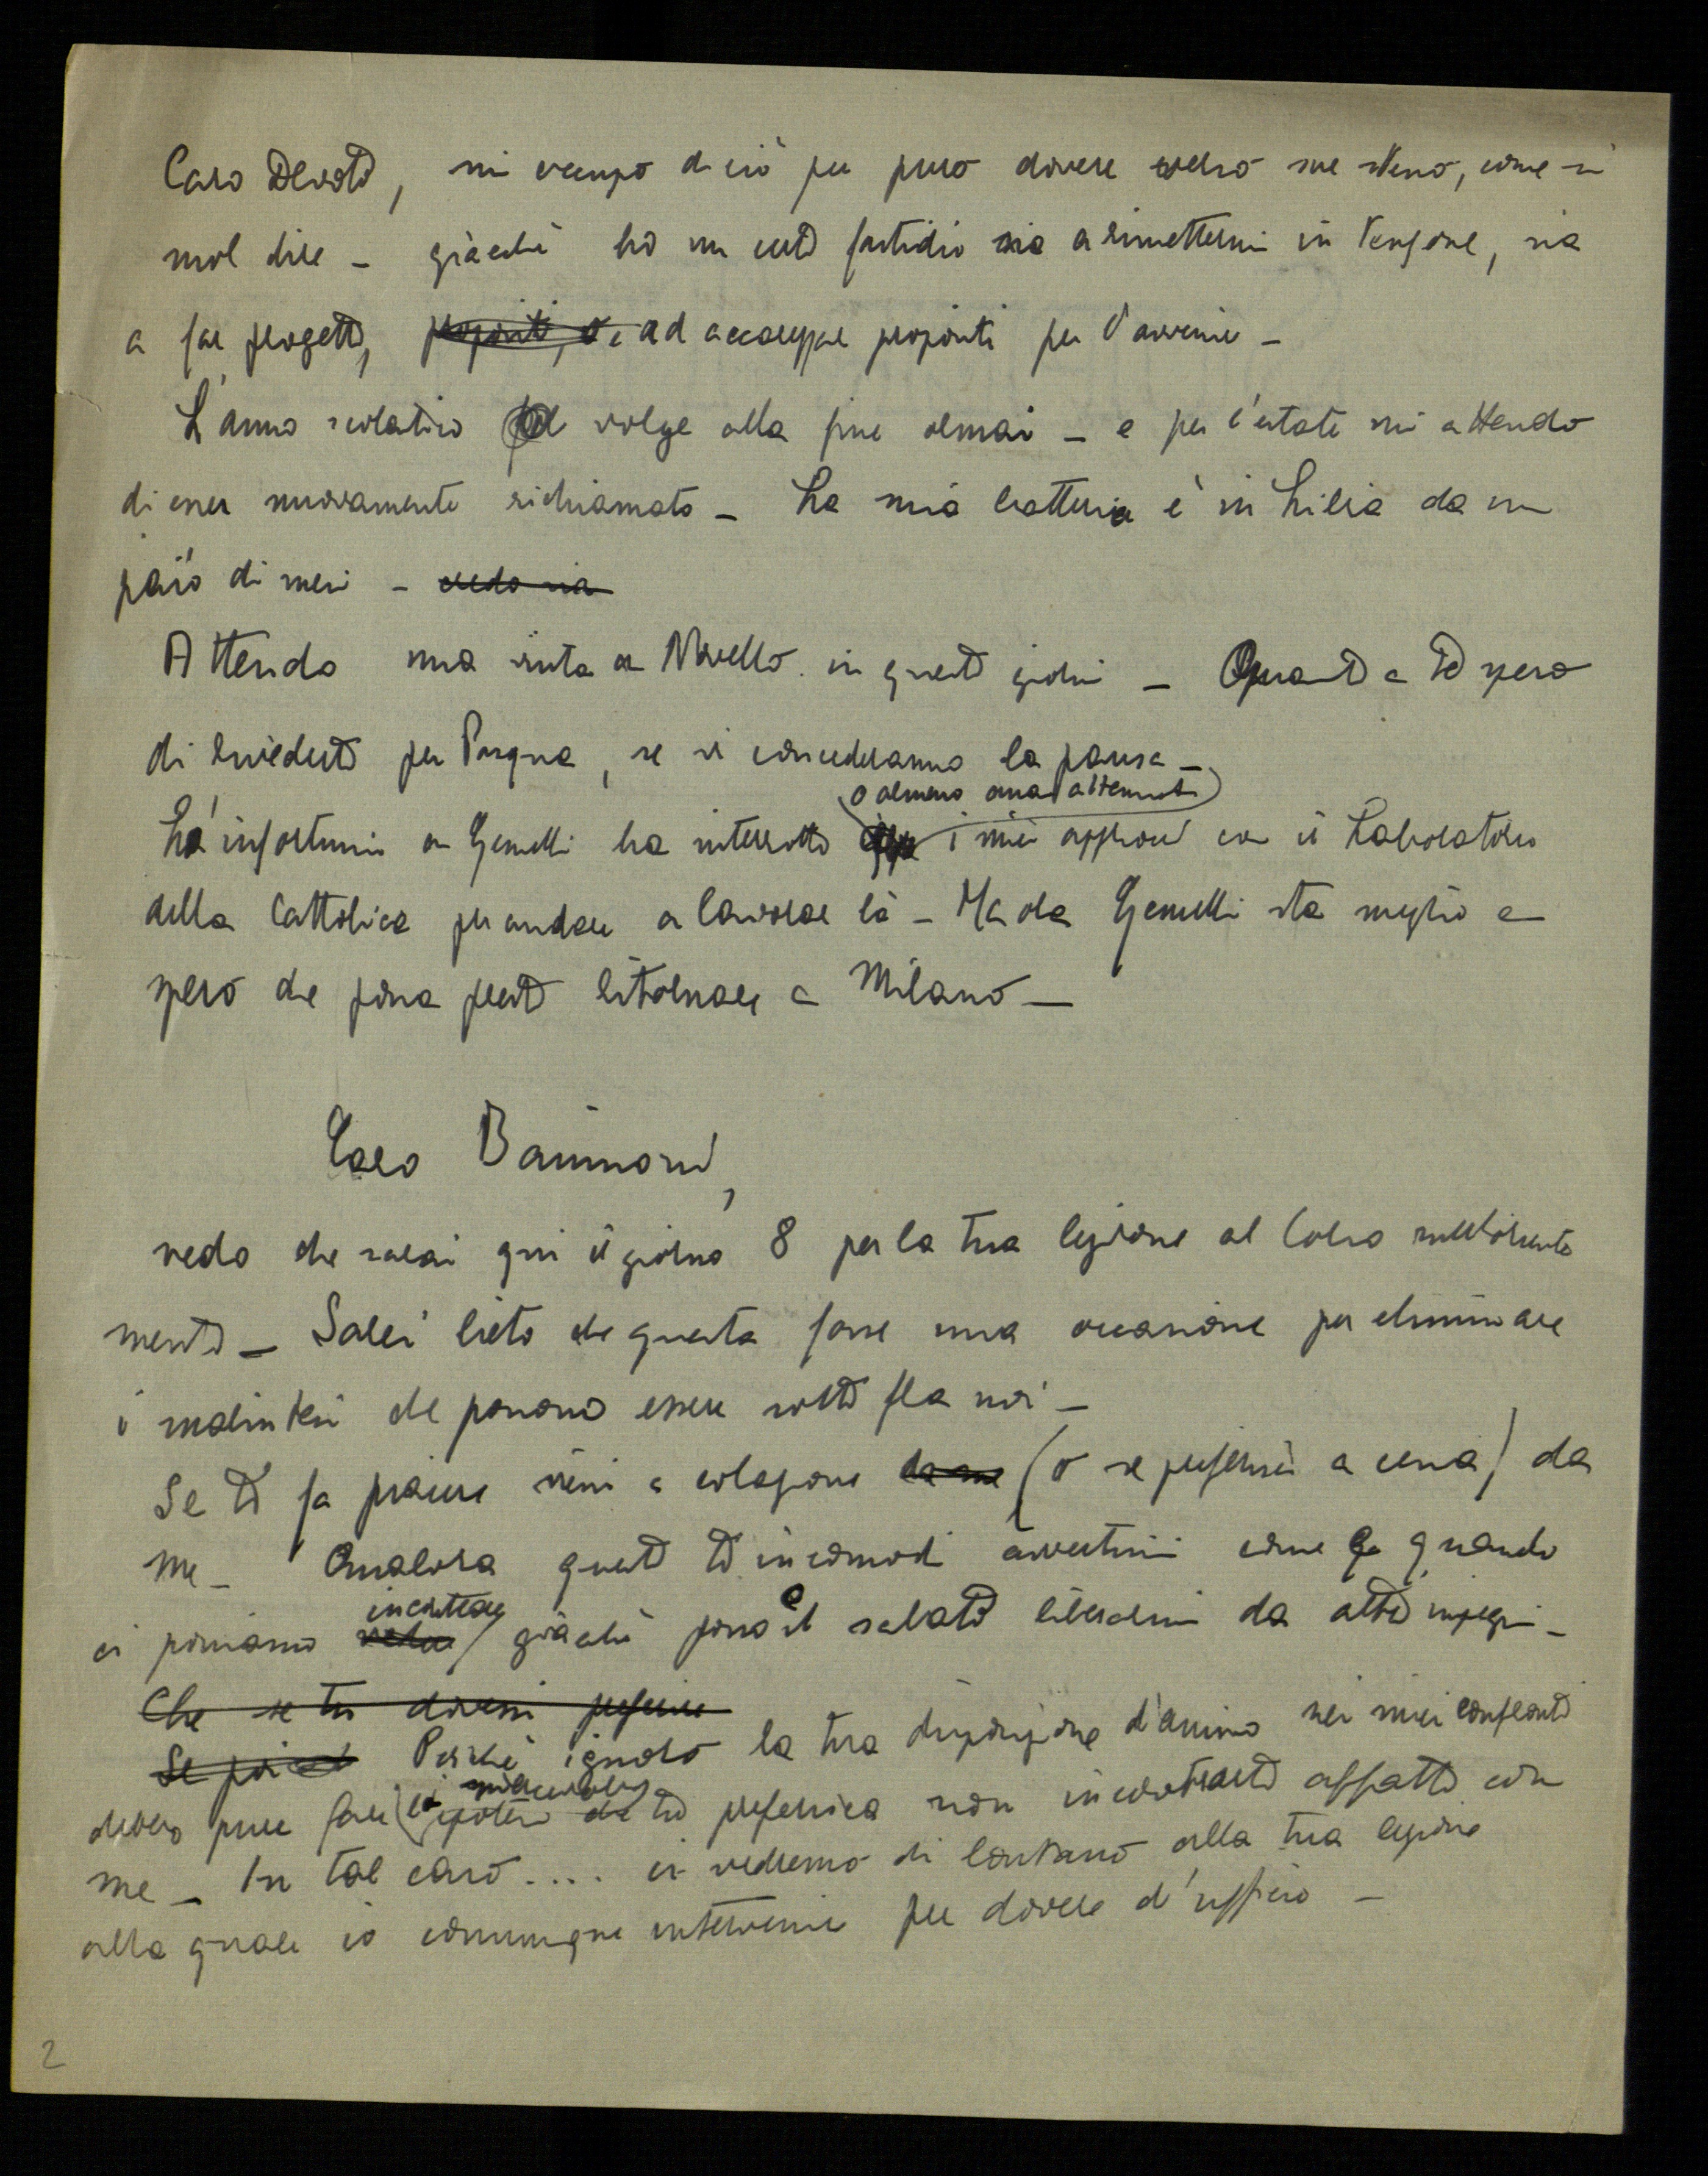 Caro Devoto, mi occupo di ciò per puro dovere verso me stesso, come si
suol dire – giacché ho un certo fastidio sia a rimettermi in tensione, sia
a far progetti, propositi, o e ad accarezzare propositi per l'avvenire –
L'anno scolastico volge alla fine ormai – e per l'estate mi attendo
di esser nuovamente richiamato – La mia batteria è in Libia da un
paio di mesi – credo sia
Attendo una visita a Novello in questi giorni – Quanto a te spero
di rivederti per Pasqua, se vi concederanno la pausa –
o almeno attenuato
L'infortunio a Gemelli ha interrotto i miei approcci con il Laboratorio
della Cattolica per andare a lavorare là – Ma ora Gemelli sta meglio e
spero che possa presto ritornare a Milano –
Caro Banissoni,
vedo che sarai qui il giorno 8 per la tua lezione al Corso sull'orienta
mento – Sarei lieto che questa fosse una occasione per eliminare
i malintesi che possono essere sorti fra noi –
Se ti fa piacere vieni a colazione da me (o se preferisci a cena) da
me – Qualora questo ti incomodi avvertimi come e quando
incontrare
ci possiamo vedere giacché possa il sabato liberarmi da altri impegni –
Che se tu dovessi preferire
Se poi Poiché ignoro la tua disposizione d'animo nei miei confronti
devo pure fare l'ipotesi che tu preferisca non incontrarti affatto con
me – In tal caso .... ci vedremo di lontano alla tua lezione
alla quale io comunque interverrò per dovere d'ufficio –
2